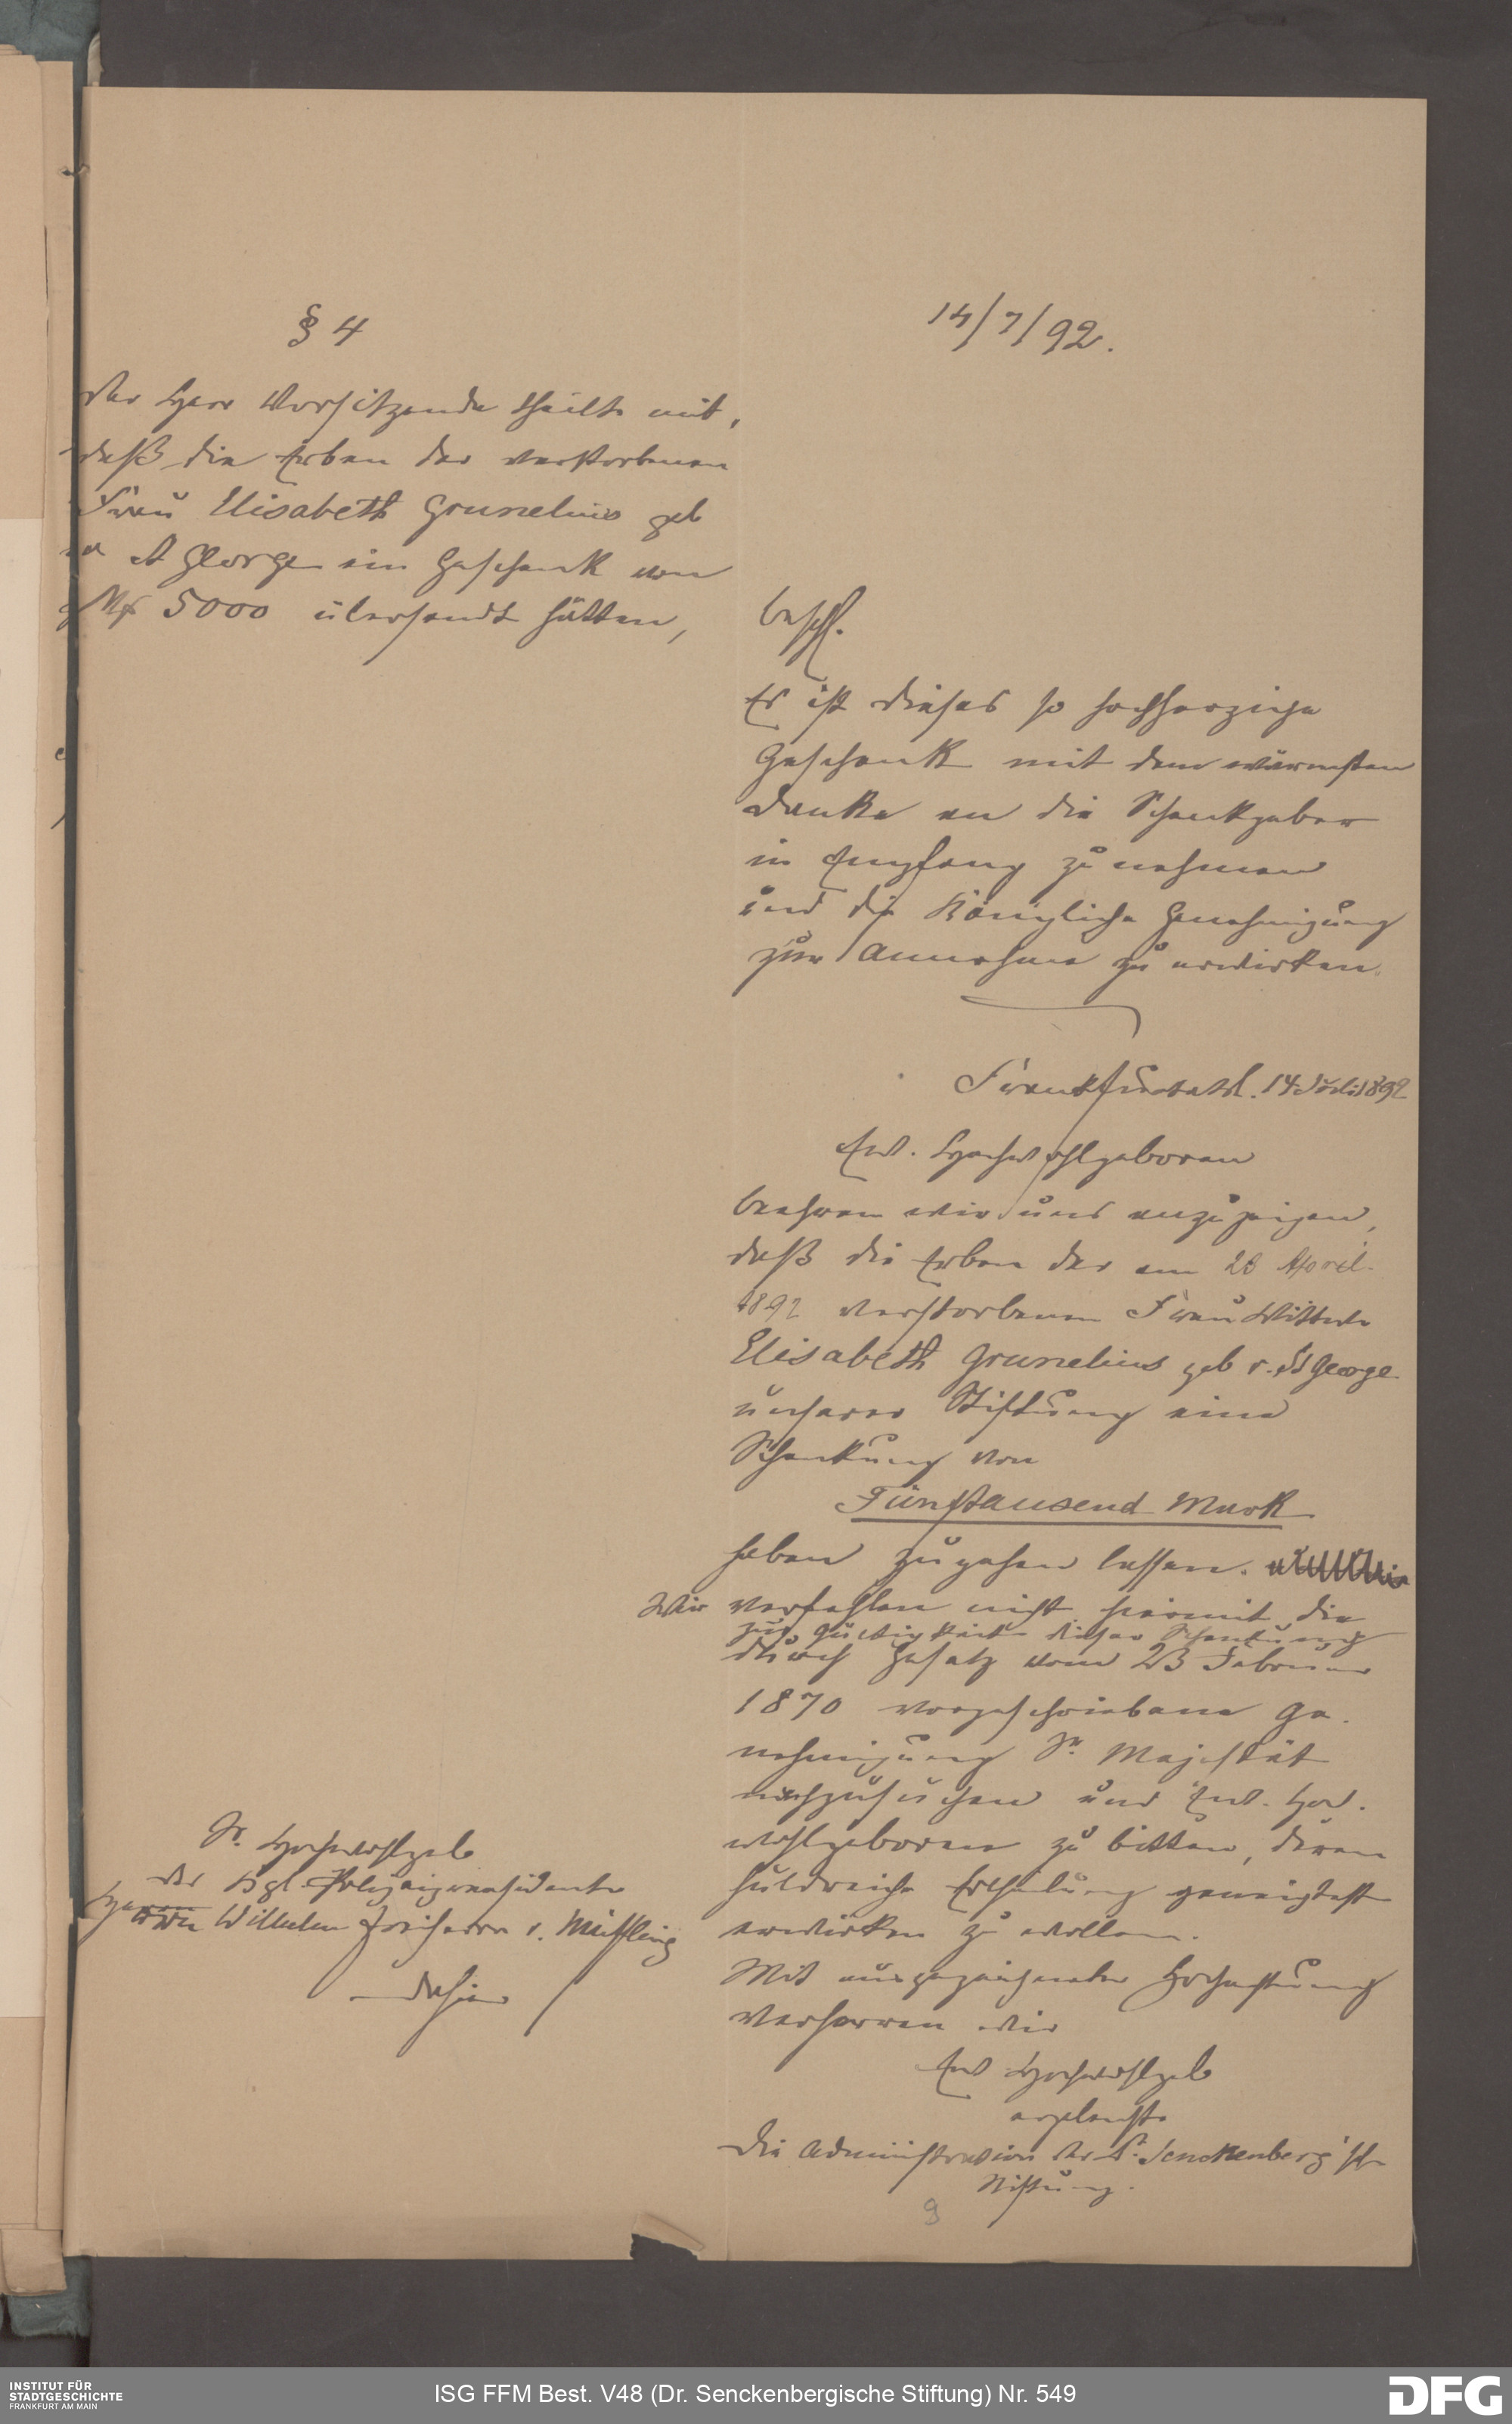 § 4
14/7/92.
Der Herr Vorsitzende theilte mit,
daß die Erben der verstorbenen
Frau Elisabeth Grunelius geb
St George ein Geschenk von
Mk 5000 übersandt hätten,
beschl.
Es ist dieses so hochherzige
Geschenk mit dem wärmsten
Danke an die Schenkgeber
in Empfang zu nehmen
und die Königliche Genehmigung
zur Annahme zu erwirken.
Frankfurt a/M. 14 Juli 1892
Ew. Hochwohlgeboren
beehren wir uns anzuzeigen,
daß die Erben der am 28 April
1892 verstorbenen Frau Wittwe
Elisabeth Grunelius geb v. St George
unserer Stiftung eine
Schenkung von
Fünftausend Mark
haben zugehen lassen.
Wir verfehlen nicht hiermit die
zur Gültigkeit dieser Schenkung
durch Gesetz vom 23 Februar
1870 vorgeschriebene Ge-
nehmigung Sr. Majestät
nachzusuchen und Ew. Hoch.
wohlgeboren zu bitten, deren
huldreiche Ertheilung geneigtest
erwirken zu wollen.
Mit ausgezeichneter Hochachtung
verharren wir
Ew Hochwohlgeb
ergebenste
Die Administration der Dr. Senckenberg'sch
Stiftung.
Sr. Hochwohlgeb
der Kgl. Polizeipraesidente
Herrn Wilhelm Freiherrn v. Müffling
dahier
9
INSTITUT FÜR
STADTGESCHICHTE
FRANKFURT AM MAIN
ISG FFM Best. V48 (Dr. Senckenbergische Stiftung) Nr. 549
DFG